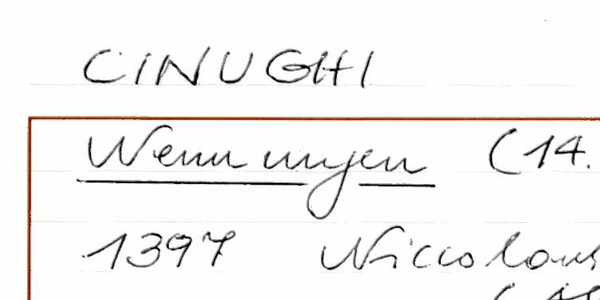 CINUGHI
Nennungen (14.
1397 Niccolous